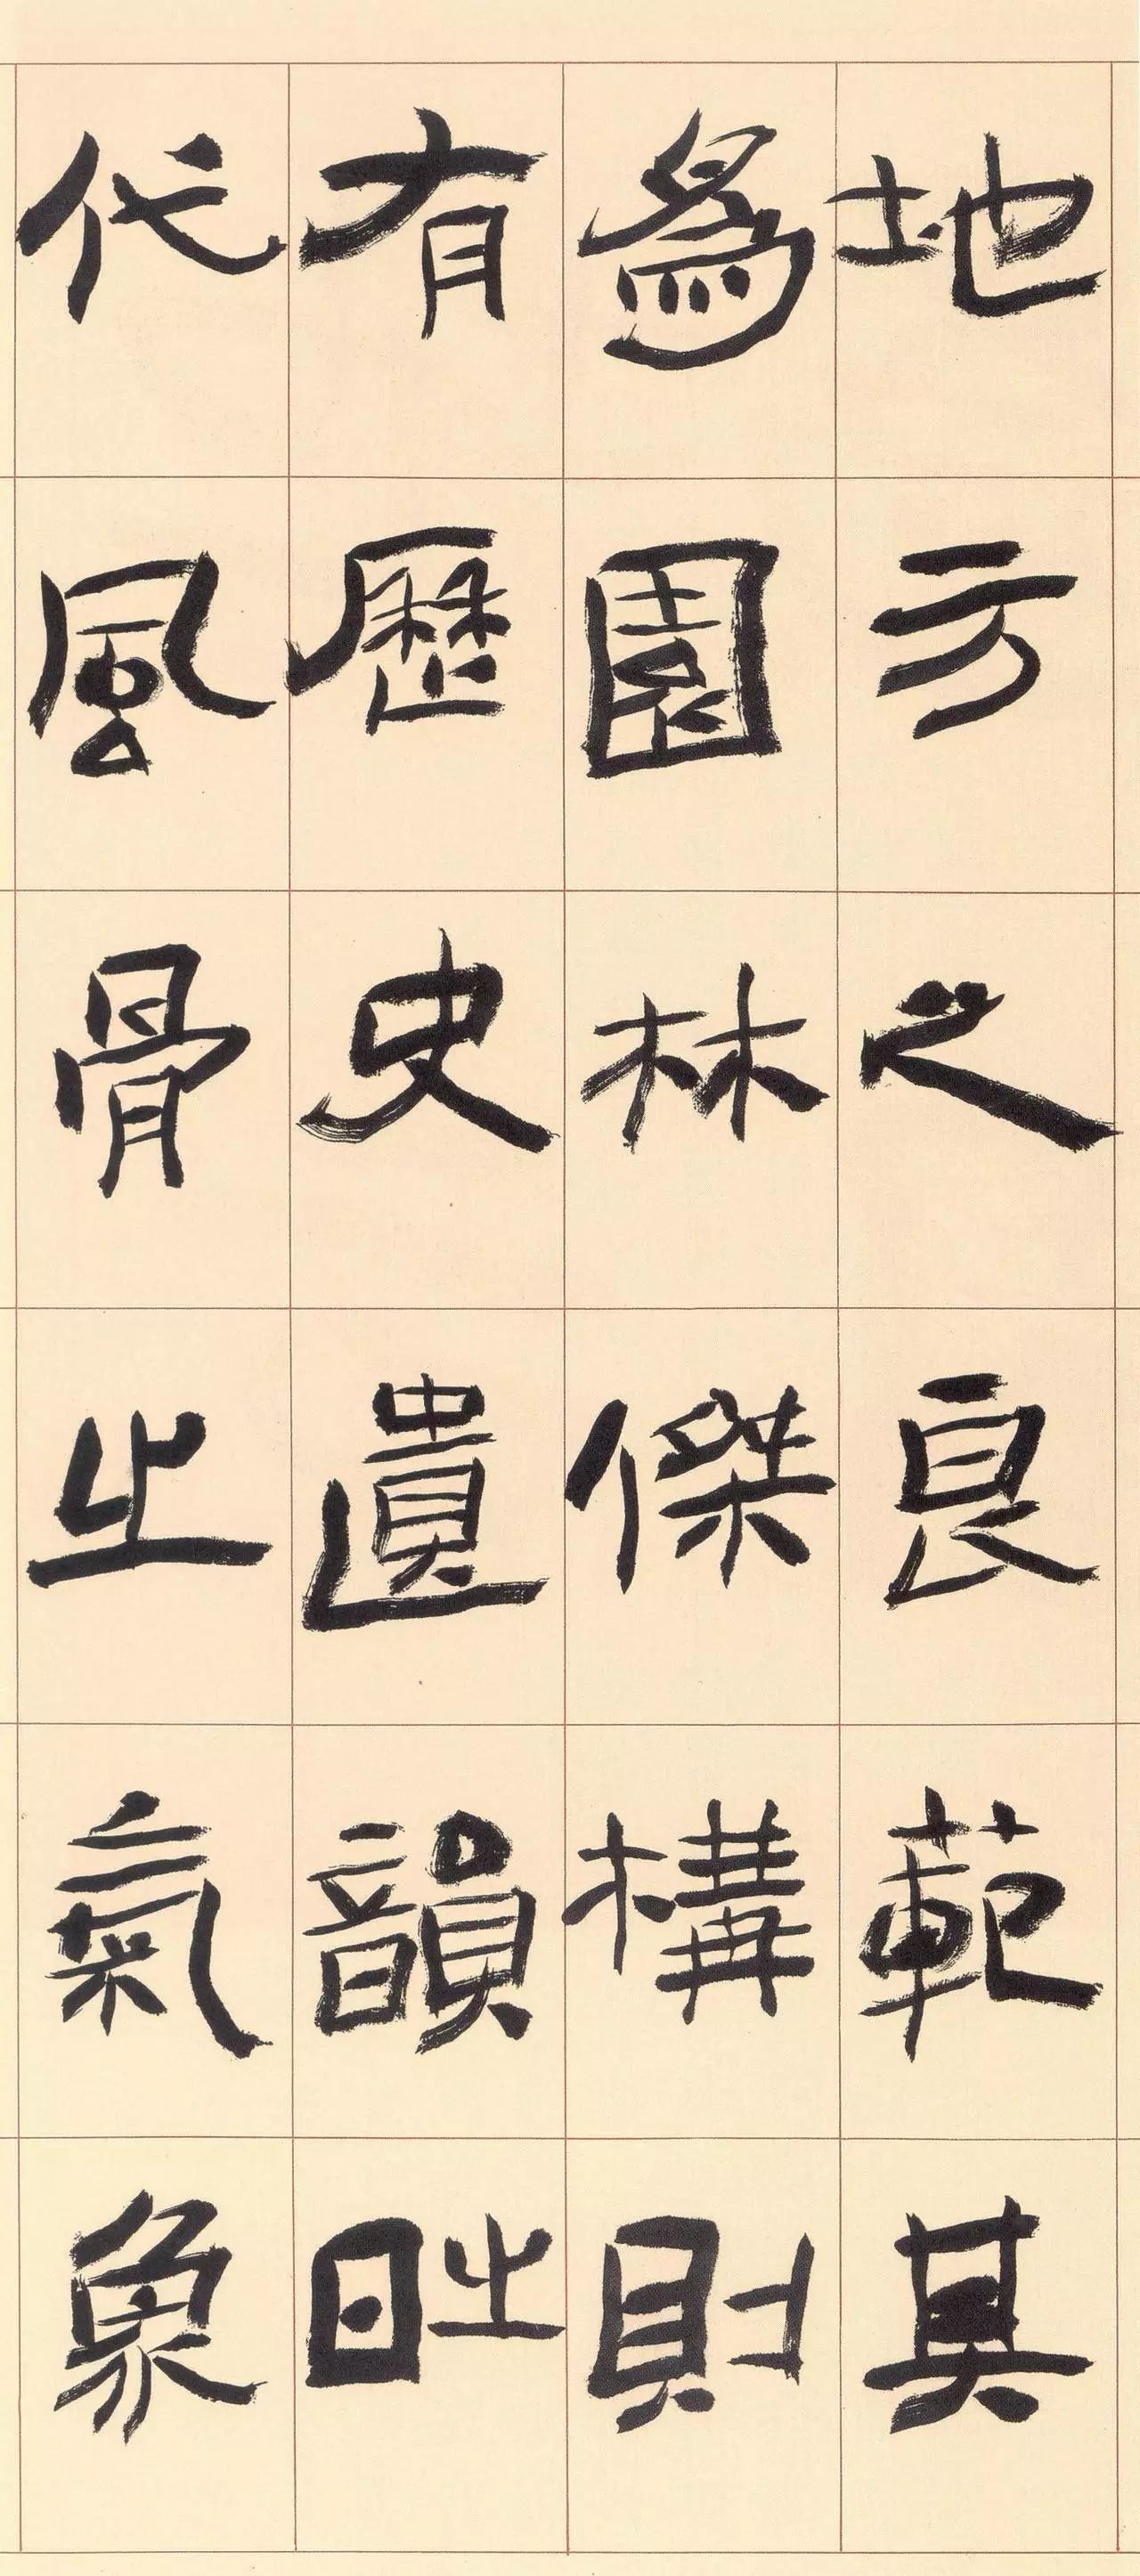 地方之良範其
爲園林傑構則
有歷史遺韻時
代風骨之氣象